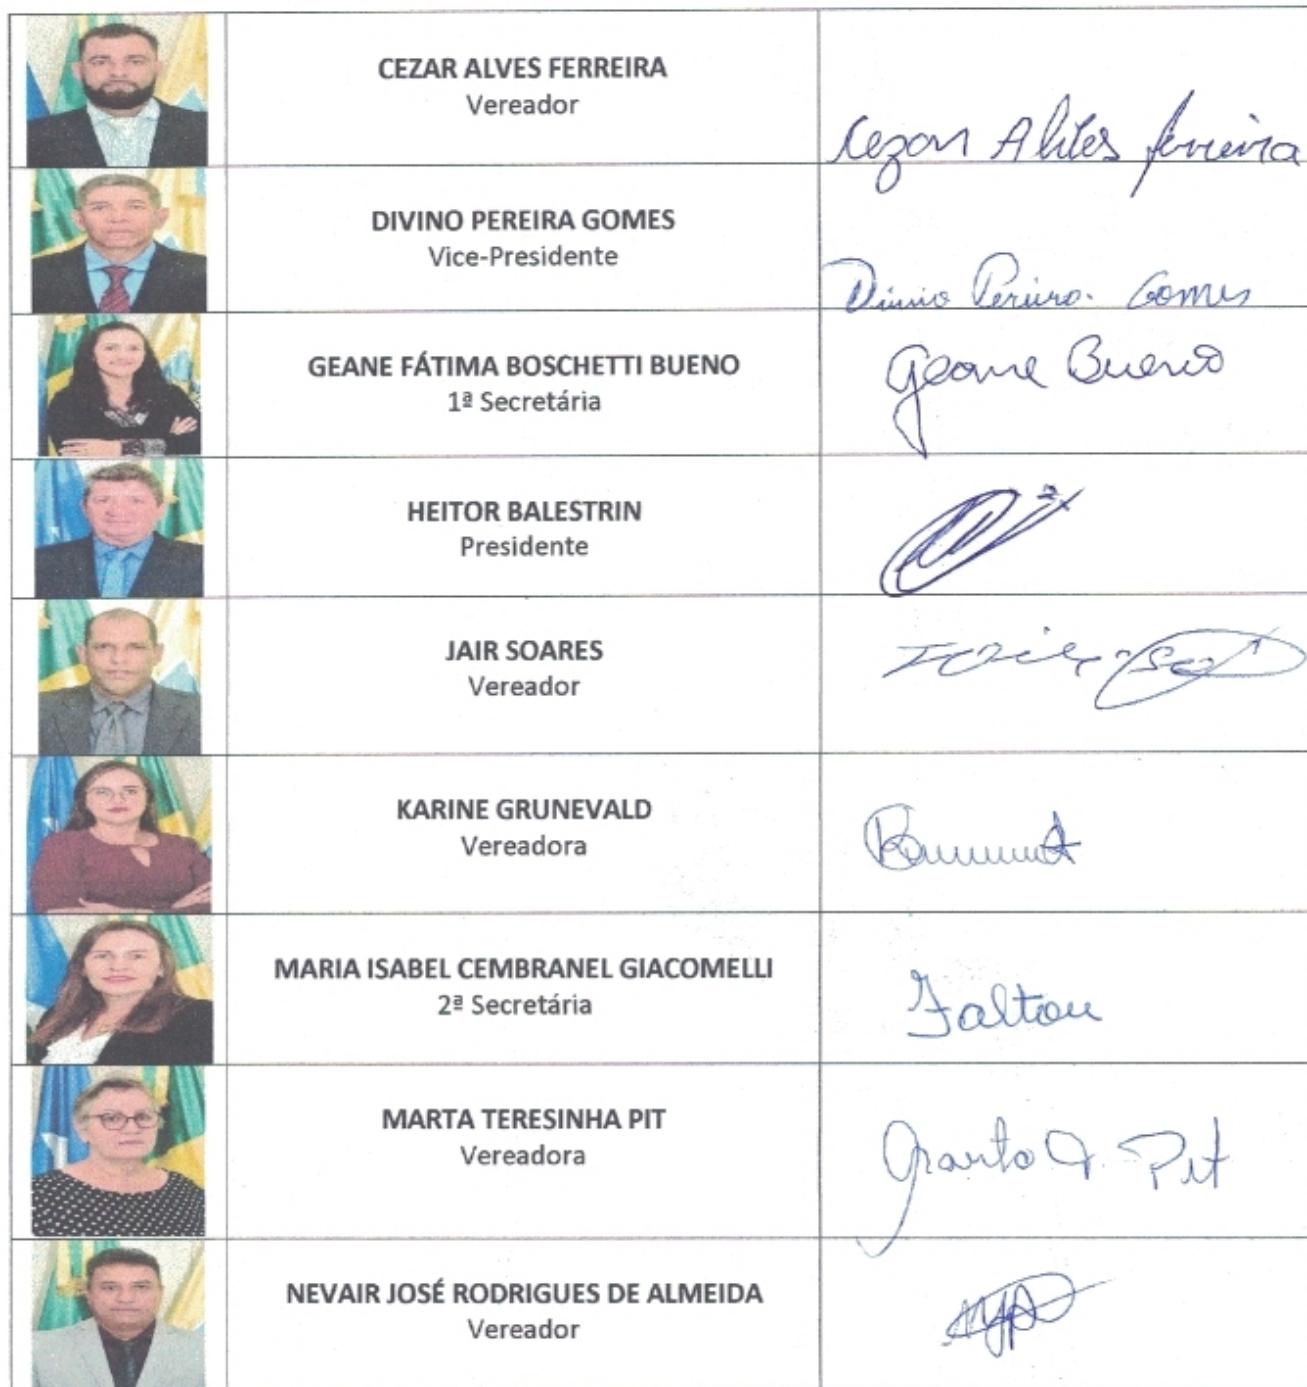 CEZAR ALVES FERREIRA
Vereador
Cezar Alves Ferreira
DIVINO PEREIRA GOMES
Vice-Presidente
Divino Pereira Gomes
GEANE FÁTIMA BOSCHETTI BUENO
1ª Secretária
Geane Bueno
HEITOR BALESTRIN
Presidente
JAIR SOARES
Vereador
KARINE GRUNEVALD
Vereadora
MARIA ISABEL CEMBRANEL GIACOMELLI
2ª Secretária
Faltou
MARTA TERESINHA PIT
Vereadora
Marta T. Pit
NEVAIR JOSÉ RODRIGUES DE ALMEIDA
Vereador